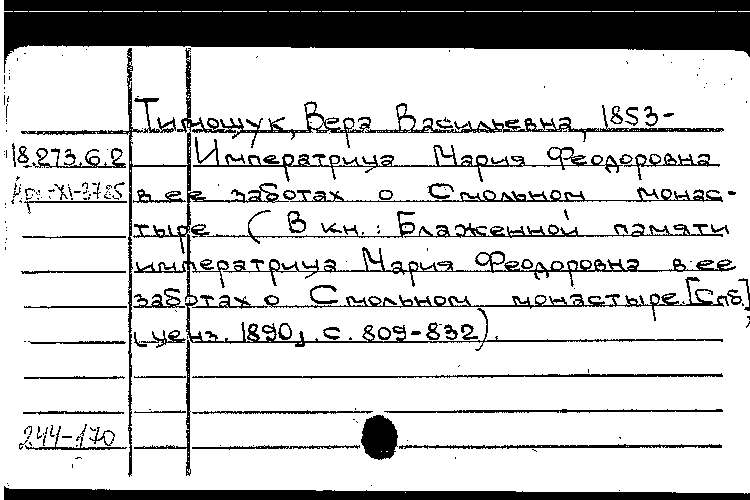 Тимощук, Вера Васильевна, 1853-
18.273.6.2 Императрица Мария Феодоровна
в ее заботах о Смольном монас-
тыре. (В кн.: Блаженной памяти
императрица Мария Феодоровна в ее
заботах о Смольном монастыре. [Спб,
ценз. 1890], с. 809-832).
244-170